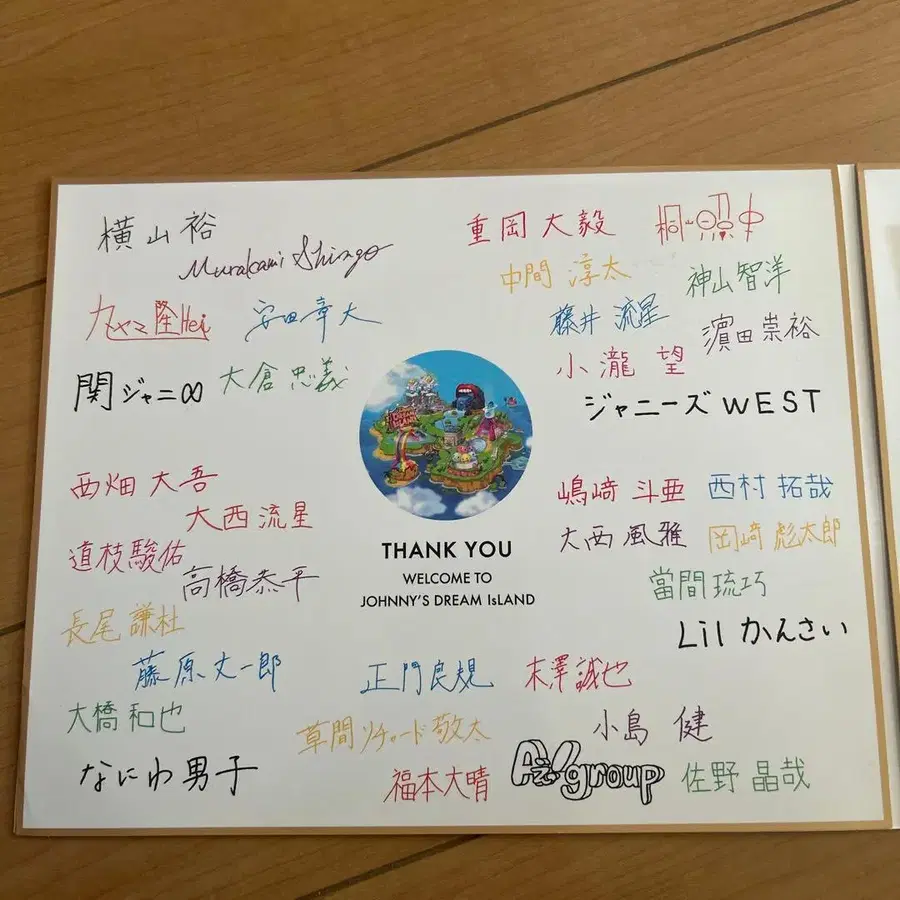 横山裕
Murakami Shingo
丸ヤマ隆Hei
安田章大
関ジャニ∞
大倉忠義
重岡大毅
桐山照史
中間 淳太
神山智洋
藤井 流星
濵田崇裕
小瀧 望
ジャニーズ WEST
THANK YOU
WELCOME TO
JOHNNY'S DREAM IsLAND
西畑 大吾
大西流星
道枝駿佑
高橋恭平
長尾謙杜
藤原丈一郎
大橋和也
なにわ男子
嶋﨑 斗亜
西村 拓哉
大西 風雅
岡﨑 彪太郎
當間 琉巧
Lil かんさい
正門良規
末澤誠也
草間リチャード敬太
小島 健
福本大晴
Aぇ! group
佐野 晶哉